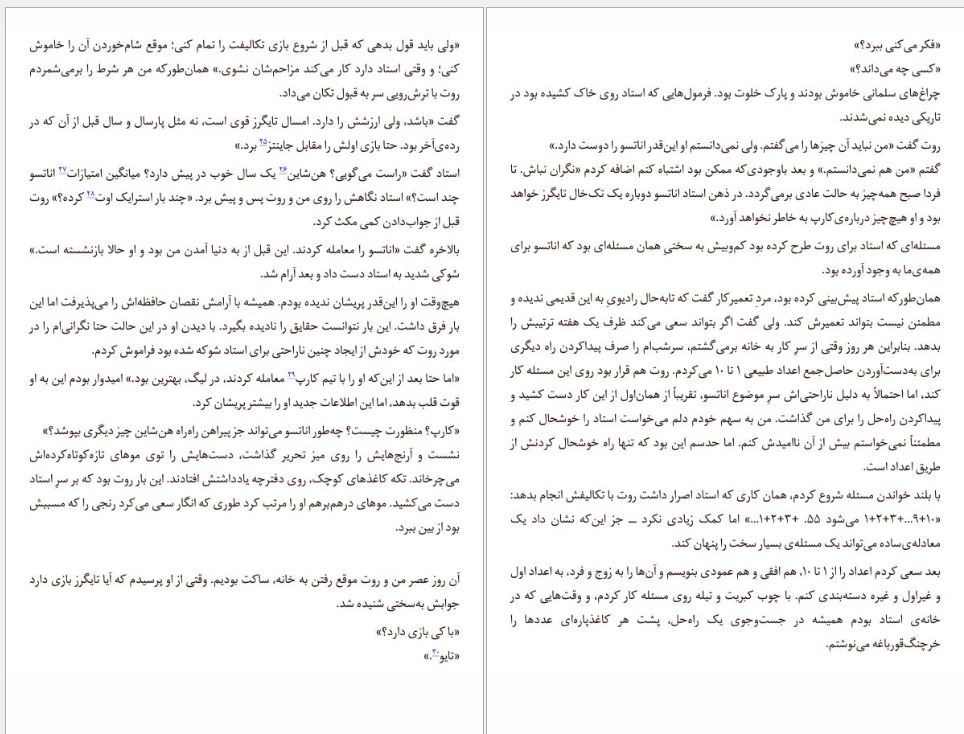 «ولی باید قول بدهی که قبل از شروع بازی تکالیفت را تمام کنی؛ موقع شام‌خوردن آن را خاموش
کنی؛ و وقتی استاد دارد کار می‌کند مزاحم‌شان نشوی.» همان‌طورکه من هر شرط را برمی‌شمردم
روت با ترش‌رویی سر به قبول تکان می‌داد.
گفت «باشد، ولی ارزشش را دارد. امسال تایگرز قوی است، نه مثل پارسال و سال قبل از آن که در
رده‌ی‌آخر بود. حتا بازی اولش را مقابل جاینتز۲۵ برد.»
استاد گفت «راست می‌گویی؟ هن‌شاین۲۶ یک سال خوب در پیش دارد؟ میانگین امتیازات۲۷ اناتسو
چند است؟» استاد نگاهش را روی من و روت پس و پیش برد. «چند بار استرایک اوت۲۸ کرده؟» روت
قبل از جواب‌دادن کمی مکث کرد.
بالاخره گفت «اناتسو را معامله کردند. این قبل از به دنیا آمدن من بود و او حالا بازنشسته است.»
شوکی شدید به استاد دست داد و بعد آرام شد.
هیچ‌وقت او را این‌قدر پریشان ندیده بودم. همیشه با آرامش نقصان حافظه‌اش را می‌پذیرفت اما این
بار فرق داشت. این بار نتوانست حقایق را نادیده بگیرد. با دیدن او در این حالت حتا نگرانی‌ام را در
مورد روت که خودش از ایجاد چنین ناراحتی برای استاد شوکه شده بود فراموش کردم.
«اما حتا بعد از این‌که او را با تیم کارپ۲۹ معامله کردند، در لیگ، بهترین بود.» امیدوار بودم این به او
قوت قلب بدهد، اما این اطلاعات جدید او را بیشتر پریشان کرد.
«کارپ؟ منظورت چیست؟ چه‌طور اناتسو می‌تواند جز پیراهن راه‌راه هن‌شاین چیز دیگری بپوشد؟»
نشست و آرنج‌هایش را روی میز تحریر گذاشت، دست‌هایش را توی موهای تازه‌کوتاه‌کرده‌اش
می‌چرخاند. تکه کاغذهای کوچک، روی دفترچه یادداشتش افتادند. این بار روت بود که بر سرِ استاد
دست می‌کشید. موهای درهم‌برهم او را مرتب کرد طوری که انگار سعی می‌کرد رنجی را که مسببش
بود از بین ببرد.
آن روز عصر من و روت موقع رفتن به خانه، ساکت بودیم. وقتی از او پرسیدم که آیا تایگرز بازی دارد
جوابش به‌سختی شنیده شد.
«با کی بازی دارد؟»
«تایو۳۰.»
«فکر می‌کنی ببرد؟»
«کسی چه می‌داند؟»
چراغ‌های سلمانی خاموش بودند و پارک خلوت بود. فرمول‌هایی که استاد روی خاک کشیده بود در
تاریکی دیده نمی‌شدند.
روت گفت «من نباید آن چیزها را می‌گفتم. ولی نمی‌دانستم او این‌قدر اناتسو را دوست دارد.»
گفتم «من هم نمی‌دانستم.» و بعد باوجودی‌که ممکن بود اشتباه کنم اضافه کردم «نگران نباش. تا
فردا صبح همه‌چیز به حالت عادی برمی‌گردد. در ذهن استاد اناتسو دوباره یک تک‌خال تایگرز خواهد
بود و او هیچ‌چیز درباره‌ی‌کارپ به خاطر نخواهد آورد.»
مسئله‌ای که استاد برای روت طرح کرده بود کم‌وبیش به سختیِ همان مسئله‌ای بود که اناتسو برای
همه‌ی‌ما به وجود آورده بود.
همان‌طورکه استاد پیش‌بینی کرده بود، مردِ تعمیرکار گفت که تابه‌حال رادیویِ به این قدیمی ندیده و
مطمئن نیست بتواند تعمیرش کند. ولی گفت اگر بتواند سعی می‌کند ظرف یک هفته ترتیبش را
بدهد. بنابراین هر روز وقتی از سرِ کار به خانه برمی‌گشتم، سرشب‌ام را صرف پیداکردن راه دیگری
برای به‌دست‌آوردن حاصل‌جمع اعداد طبیعی ۱ تا ۱۰ می‌کردم. روت هم قرار بود روی این مسئله کار
کند، اما احتمالاً به دلیل ناراحتی‌اش سرِ موضوع اناتسو، تقریباً از همان‌اول از این کار دست کشید و
پیداکردن راه‌حل را برای من گذاشت. من به سهم خودم دلم می‌خواست استاد را خوشحال کنم و
مطمئناً نمی‌خواستم بیش از آن ناامیدش کنم. اما حدسم این بود که تنها راه خوشحال کردنش از
طریق اعداد است.
با بلند خواندن مسئله شروع کردم، همان کاری که استاد اصرار داشت روت با تکالیفش انجام بدهد:
«۱+۲+۳+...۹+۱۰ می‌شود ۵۵. ۱+۲+۳+...» اما کمک زیادی نکرد ــ جز این‌که نشان داد یک
معادله‌ی‌ساده می‌تواند یک مسئله‌ی بسیار سخت را پنهان کند.
بعد سعی کردم اعداد را از ۱ تا ۱۰، هم افقی و هم عمودی بنویسم و آن‌ها را به زوج و فرد، به اعداد اول
و غیراول و غیره دسته‌بندی کنم. با چوب کبریت و تیله روی مسئله کار کردم، و وقت‌هایی که در
خانه‌ی استاد بودم همیشه در جست‌وجوی یک راه‌حل، پشت هر کاغذپاره‌ای عددها را
خرچنگ‌قورباغه می‌نوشتم.